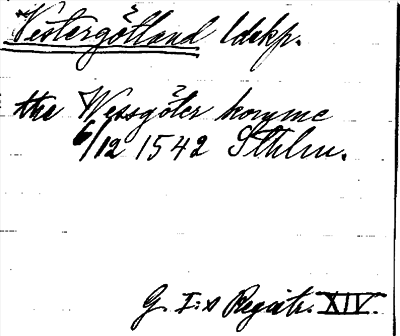 Vestergötland ldskp.
the Wessgöter komme
6/12 1542 Sthlm.
G. I:s Registr. XIV.